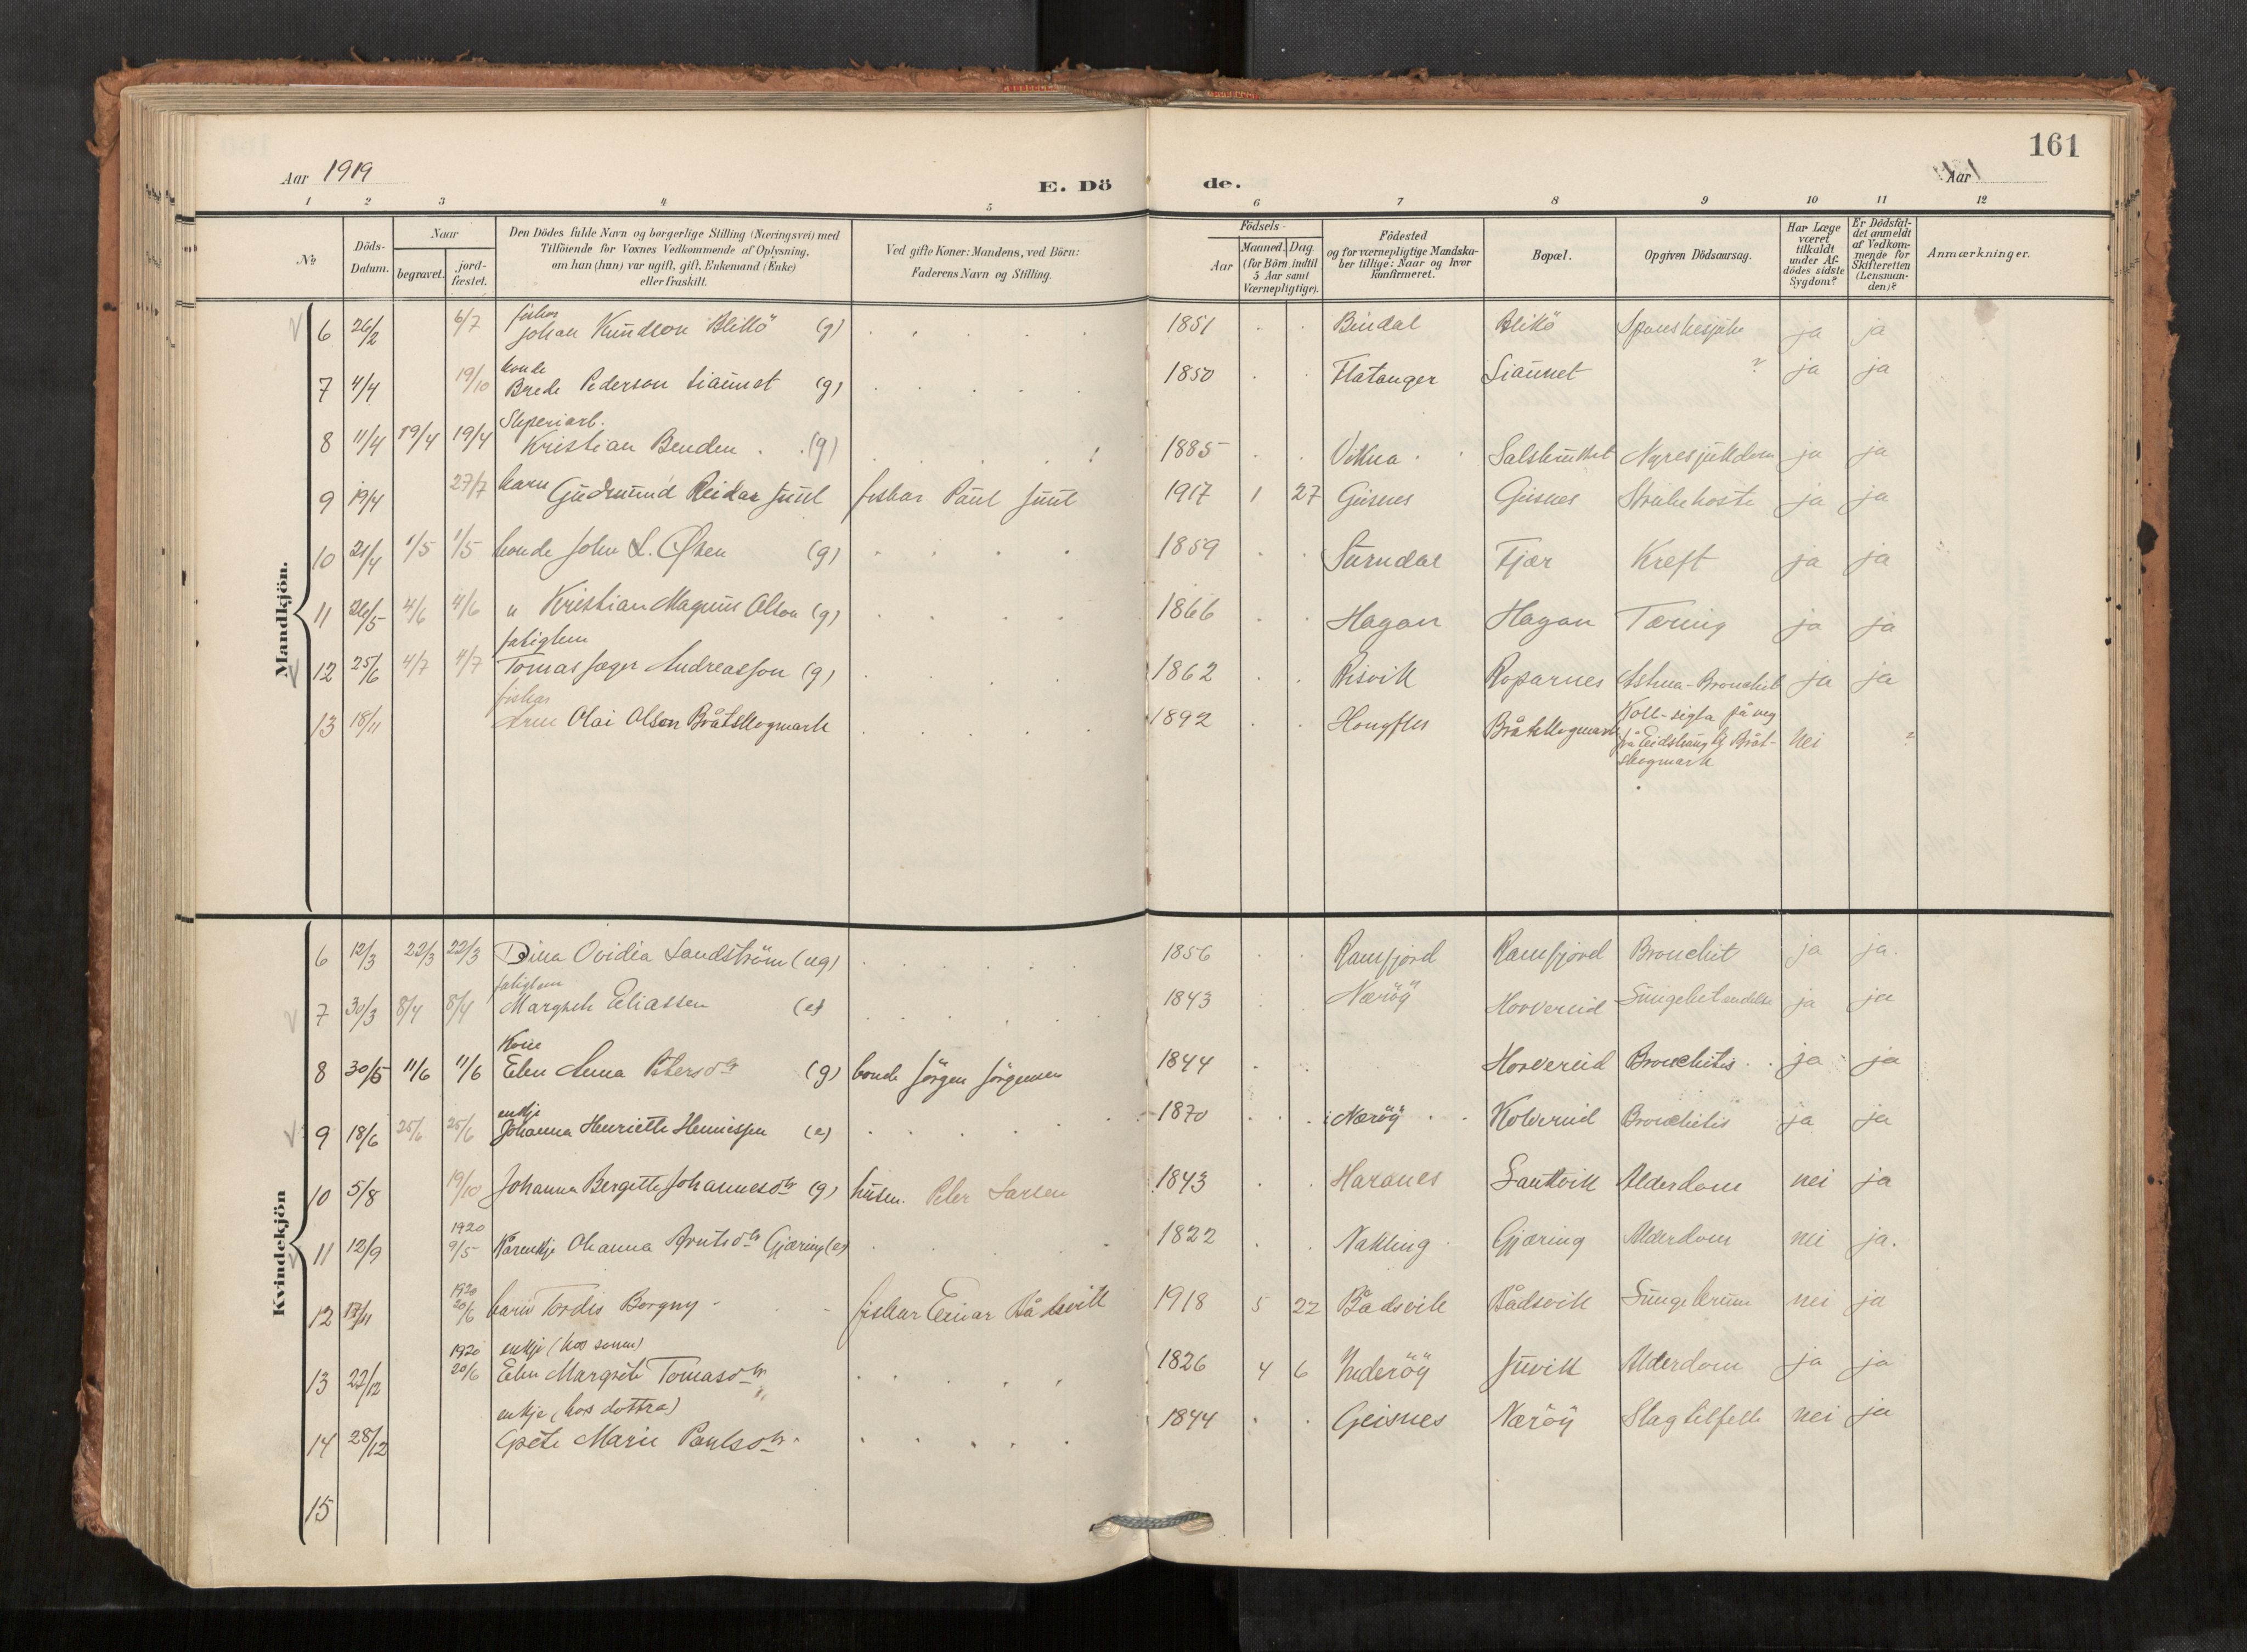 161
Aar 1919
E. Dö de.
Aar
1 2 3 4 5 6 7 8 9 10 11 12
№
Döds-Datum.
Naar
begravet.
jord-fæstet.
Den Dödes fulde Navn og borgerlige Stilling (Næringsvei) med
Tilföiende for Voxnes Vedkommende af Oplysning,
om han (hun) var ugift, gift, Enkemand (Enke)
eller fraskilt.
Ved gifte Koner: Mandens, ved Börn:
Faderens Navn og Stilling.
Födsels-
Aar
Maaned. Dag.
(for Börn indtil
5 Aar samt
Værnepligtige).
Födested
og for værnepligtige Mandska-
ber tillige: Naar og hvor
konfirmeret.
Bopæl.
Opgiven Dödsaarsag.
Har Læge
været
tilkaldt
under Af-
dödes sidste
Sygdom?
Er Dödsfal-
det anmeldt
af Vedkom-
mende for
Skifteretten
(Lensman-
den)?
Anmærkninger.
Mandkjön.
fiskar
6 26/2 6/7 Johan Knudson Blikkö (g) 1851 Bindal Blikkö Spanskesjuke ja ja
bonde
7 4/4 19/10 Brede Pederson Liaunet (g) 1850 Flatanger Liaunet ? ja ja
Sliperiarb.
8 11/4 19/4 19/4 Kristian Benden (g) 1885 Vikna Salsbrukket Nyresjukdom ja ja
9 19/4 27/7 barn Gudmund Reidar Juul fiskar Paul Juul 1917 1 27 Geisnes Geisnes Strubehoste ja ja
10 21/4 1/5 1/5 bonde John L. Øien (g) 1859 Surndal Fjær Kreft ja ja
11 26/5 4/6 4/6 " Kristian Magnus Olson (g) 1866 Hagan Hagan Tæring ja ja
fatiglem
12 25/6 4/7 4/7 Tomas Jæger Andreassen (g) 1862 Risvik Roparnes Astma-Bronchit ja ja
fiskar
13 18/11 Arne Olai Olson Bråtskogmark 1892 Bråtskogmark Koll-sigla på veg
frå Eidshaug til Bråt- nei ?
skogmark
Kvindekjön
6 12/3 22/3 22/3 Dina Ovidia Sandström (ug) 1856 Ramfjord Ramfjord Bronchit ja ja.
fatiglem
7 30/3 8/4 8/4 Margrete Eliassen (e) 1843 Næröy Horvereid Lungebetendelse ja ja
Kone
8 30/5 11/6 11/6 Elen Anna Petersdtr (g) bonde Jörgen Jörgensen 1844 Horvereid Bronchitis ja ja
enkje
9 18/6 25/6 25/6 Johanna Henriette Henriksen (e) 1870 Næröy Kolvereid Bronchitis ja ja
10 5/8 19/10 Johanna Bergitte Johannesdtr (g) husm. Peter Larsen 1843 Haranes Sandvik Alderdom nei ja
1920
11 12/9 9/5 Kårenkje Ohanna Arntsdtr Gjæring (e) 1822 Nakling Gjæring Alderdom nei ja.
1920
12 17/11 20/6 barn Tordis Borgny fiskar Einar Bådsvik 1918 5 22 Bådsvik Bådsvik Lungebrann nei ja
1920 enkje (hos sonen)
13 22/12 20/6 Elen Margrete Tomasdtr 1826 4 6 Inderöy Juvik Alderdom ja ja
enkje (hos dottra)
14 28/12 Grete Marie Paulsdtr 1844 Geisnes Næröy Slagtilfelle nei ja
15